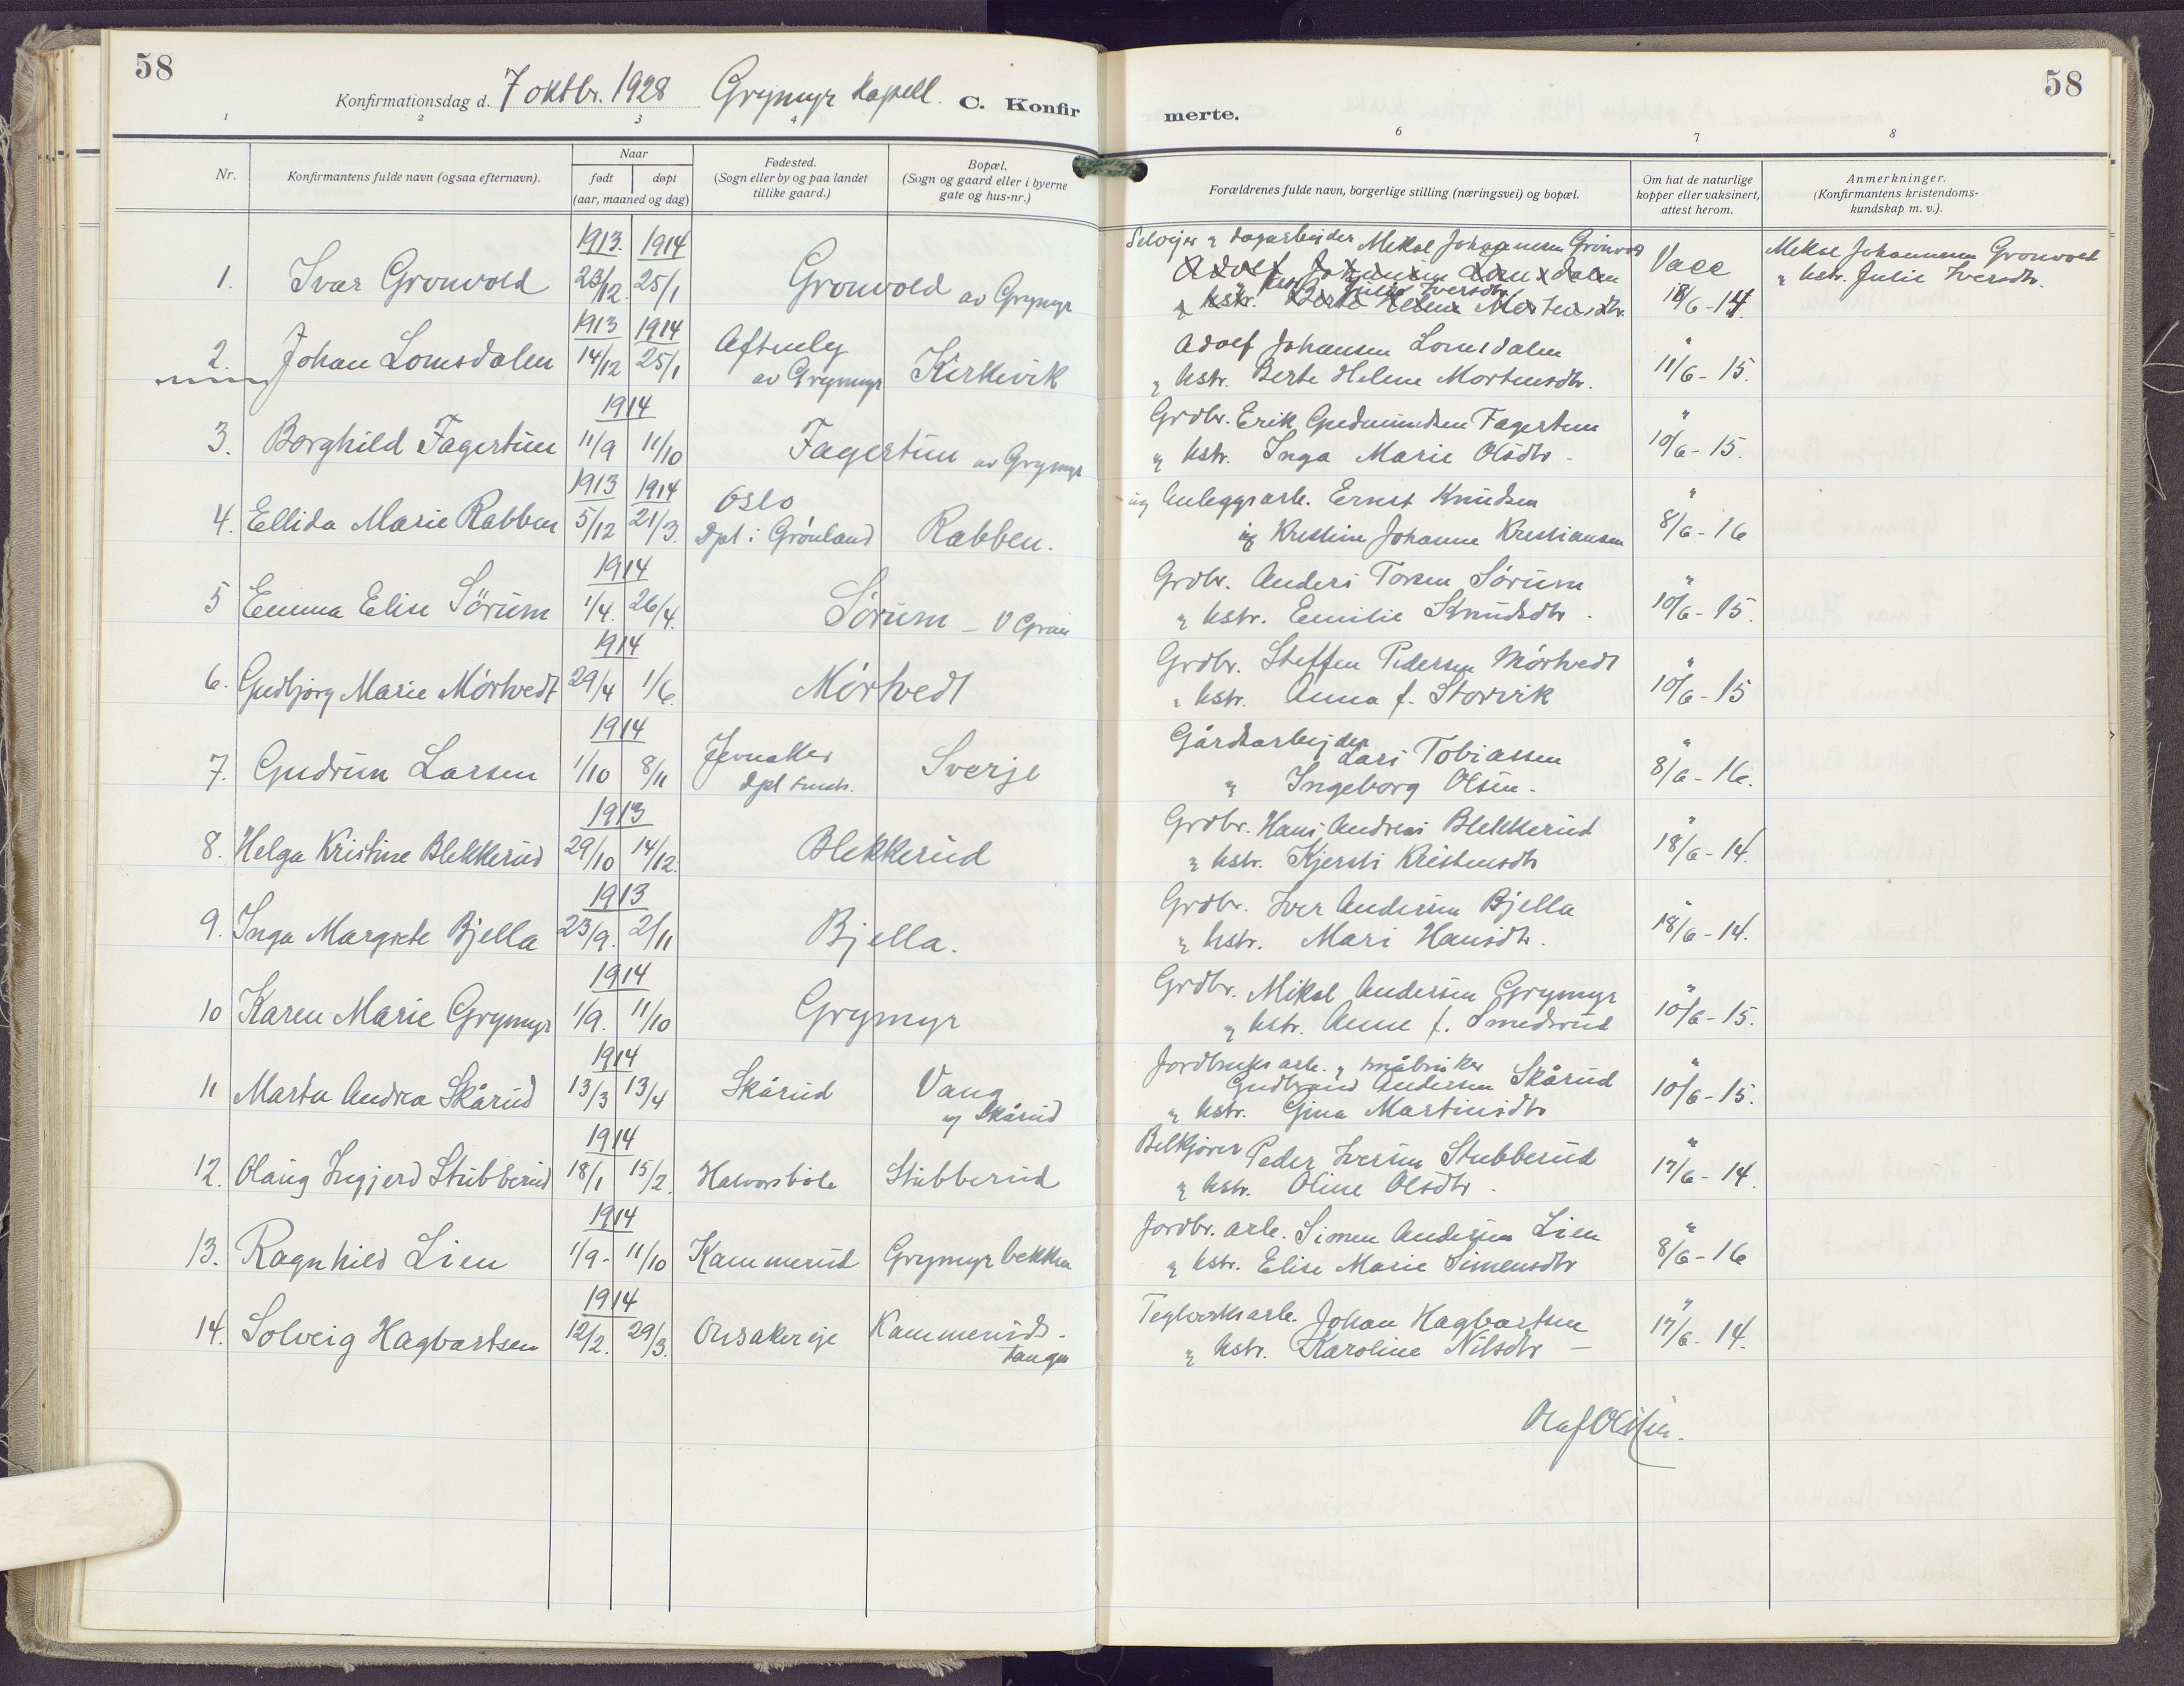 58
Konfirmationsdag d. 7 oktbr. 1928 Grymyr kapell. C. Konfirmerte.
58
1 2 3 4 6 7 8
Nr.
Konfirmantens fulde navn (ogsaa efternavn).
Naar
født
døpt
(aar, maaned og dag)
Fødested.
(Sogn eller by og paa landet
tillike gaard.)
Bopæl.
(Sogn og gaard eller i byerne
gate og hus-nr.)
Forældrenes fulde navn, borgerlige stilling (næringsvei) og bopæl.
Om hat de naturlige
kopper eller vaksinert,
attest herom.
Anmerkninger.
(Konfirmantens kristendoms-
kundskap m. v.).
1913. 1914
1. Ivar Grønvold 23/12. 25/1 Grønvold av Grymyr
Selveier & dagarbeider Mikal Johannesen Grønvold
Adolf Johansen Lomsdalen
hstr. Julie Iversdtr.
& hstr. Berte Helene Mortensdtr.
Vacc
18/6-14.
Mikal Johannesen Grønvold
& hstr. Julie Iversdtr.
1913 1914
2. Johan Lomsdalen 14/12 25/1 Aftenly
av Grymyr Kirkevik
Adolf Johansen Lomsdalen
& hstr. Berte Helene Mortensdtr.
" 11/6-15.
1914
3. Borghild Fagertun 11/9 11/10 Fagertun av Grymyr
Grdbr. Erik Gudmundsen Fagertun
& hstr. Inga Marie Olsdtr -
" 10/6-15.
1913 1914
4. Ellida Marie Rabben 5/12 21/3. Oslo
Dpt i Grønland Rabben.
ug Anleggsarb. Ernst Knudsen
ug Kristine Johanne Kristiansen
" 8/6-16
1914
5 Emma Elise Sörum 1/4. 26/4. Sörum - V Gran
Grdbr. Anders Torsen Sörum
& hstr. Emilie Knudsdtr.
" 10/6-15.
1914
6. Gudbjørg Marie Mörtvedt 29/4 1/6. Mörtvedt
Grdbr. Steffen Pedersen Mörtvedt
& hstr. Anna f. Storvik
" 10/6-15
1914
7. Gudrun Larsen 1/10 8/11 Jevnaker
dpt smst. Sverje
Gårdsarbejder
Lars Tobiassen
& Ingeborg Olsen.
" 8/6-16.
1913
8. Helga Kristine Blekkerud 29/10 14/12. Blekkerud
Grdbr. Hans Andreas Blekkerud
& hstr. Kjersti Kristensdtr
" 18/6-14.
1913
9. Inga Margrete Bjella 23/9. 2/11 Bjella.
Grdbr. Iver Andersen Bjella
& hstr. Mari Hansdtr.
" 18/6-14.
1914
10 Karen Marie Grymyr 1/9. 11/10 Grymyr
Grdbr. Mikal Andersen Grymyr
& hstr. Anne f. Smedsrud
" 10/6-15.
1914
11 Marta Andrea Skårud 13/3 13/4 Skårud Vang
av Skårud
Jordbruks arb. & småbruker
Gudbrand Andersen Skårud
& hstr. Gina Martinsdtr
" 10/6-15.
1914
12. Olaug Ingjerd Stubberud 18/1 15/2. Halvorsbøle Stubberud
Bilkjører Peder Iversen Stubberud
& hstr. Oline Olsdtr.
" 17/6-14.
1914
13. Ragnhild Lien 1/9- 11/10 Kammerud Grymyrbekken
Jordbr. arb. Simen Andersen Lien
& hstr. Elise Marie Simensdtr
" 8/6-16
1914
14. Solveig Hagbartsen 12/2. 29/3. Onsaker eje Kammeruds-
tangen
Teglverksarb. Johan Hagbartsen
& hstr. Karoline Nilsdtr -
" 17/6-14.
Olaf Olssen.